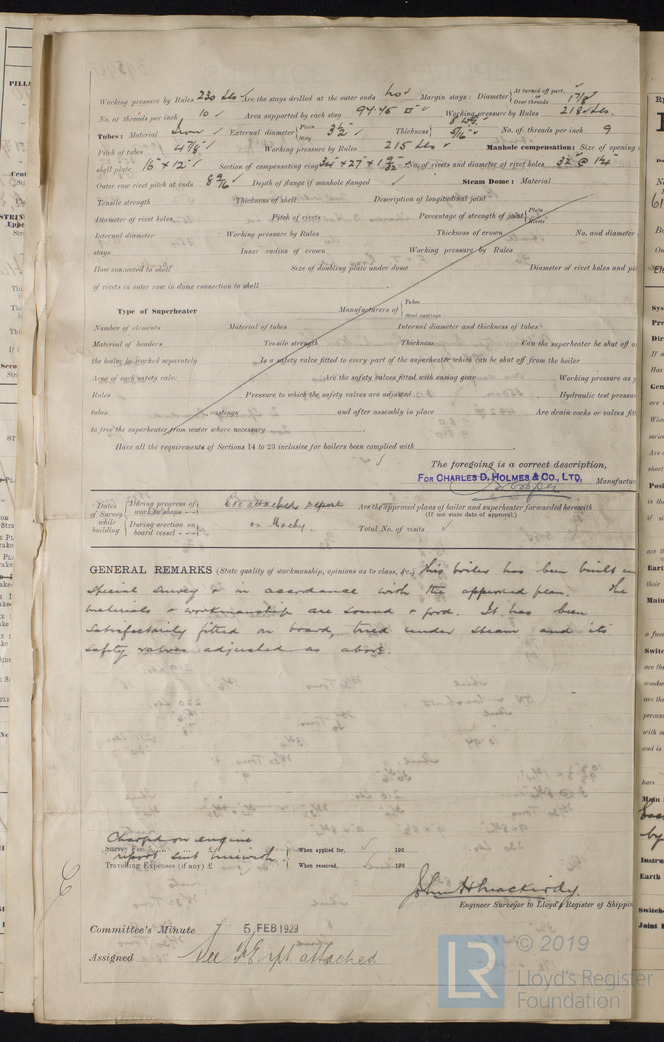 Working pressure by Rules 230 lbs Are the stays drilled at the outer ends No Margin stays: Diameter { At turned off part, or Over threads 1 7/8"
No. of threads per inch 10 Area supported by each stay 94.45 □" Working pressure by Rules 218 lbs.
Tubes: Material Iron External diameter { Plain Stay 3½" Thickness { 8 WG 5/16" No. of threads per inch 9
Pitch of tubes 4 7/8" Working pressure by Rules 215 lbs Manhole compensation: Size of opening
shell plate 16" × 12" Section of compensating ring No. of rivets and diameter of rivet holes 32 @ 1¼"
Outer row rivet pitch at ends 8 9/16" Depth of flange if manhole flanged Steam Dome: Material
Tensile strength Thickness of shell Description of longitudinal joint
Diameter of rivet holes Pitch of rivets Percentage of strength of joint { Plate Rivets
Internal diameter Working pressure by Rules Thickness of crown No. and diameter
stays Inner radius of crown Working pressure by Rules
How connected to shell Size of doubling plate under dome Diameter of rivet holes and pi
of rivets in outer row in dome connection to shell
Type of Superheater Manufacturers of { Tubes Steel castings
Number of elements Material of tubes Internal diameter and thickness of tubes
Material of headers Tensile strength Thickness Can the superheater be shut off a
the boiler be worked separately Is a safety valve fitted to every part of the superheater which can be shut off from the boiler
Area of each safety valve Are the safety valves fitted with easing gear Working pressure as p
Rules Pressure to which the safety valves are adjusted Hydraulic test pressu
tubes castings and after assembly in place Are drain cocks or valves fit
to free the superheater from water where necessary
Have all the requirements of Sections 14 to 23 inclusive for boilers been complied with
The foregoing is a correct description,
FOR CHARLES D. HOLMES & CO., LTD. Manufactu
Dates of Survey while building { During progress of work in shops - - See attached report Are the approved plans of boiler and superheater forwarded herewith
(If not state date of approval.)
During erection on board vessel - - - on Machy. Total No. of visits
GENERAL REMARKS (State quality of workmanship, opinions as to class, &c.) This boiler has been built un
special survey & in accordance with the approved plan. The
materials & workmanship are sound & good. It has been
satisfactorily fitted on board, tried under steam and its
safety valves adjusted as above.
Charged on engine
Survey Fee ... ... £ : : When applied for, 192
report sent herewith.
Travelling Expenses (if any) £ : : When received, 192
Engineer Surveyor to Lloyd's Register of Shippin
Committee's Minute 5 FEB 1929
Assigned See F.E. rpt attached
LR © 2019
Lloyd's Register
Foundation